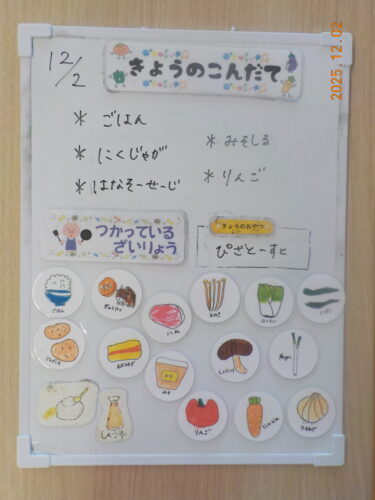 12/2
きょうのこんだて
2025.12.02
* ごはん
* みそしる
* にくじゃが
* りんご
* はなそーせーじ
つかっている
ざいりょう
きょうのおやつ
ぴざとーすと
ごはん
ぎゅうにく
ハム
えのき
はくさい
じゃがいも
みそ
しいたけ
ねぎ
りんご
にんじん
たまねぎ